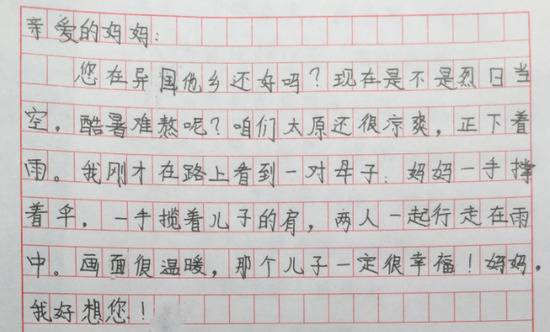 亲爱的妈妈：
您在异国他乡还好吗？现在是不是烈日当
空，酷暑难熬呢？咱们太原还很凉爽，正下着
雨。我刚才在路上看到一对母子：妈妈一手撑
着伞，一手揽着儿子的肩，两人一起行走在雨
中。画面很温暖，那个儿子一定很幸福！妈妈，
我好想您！